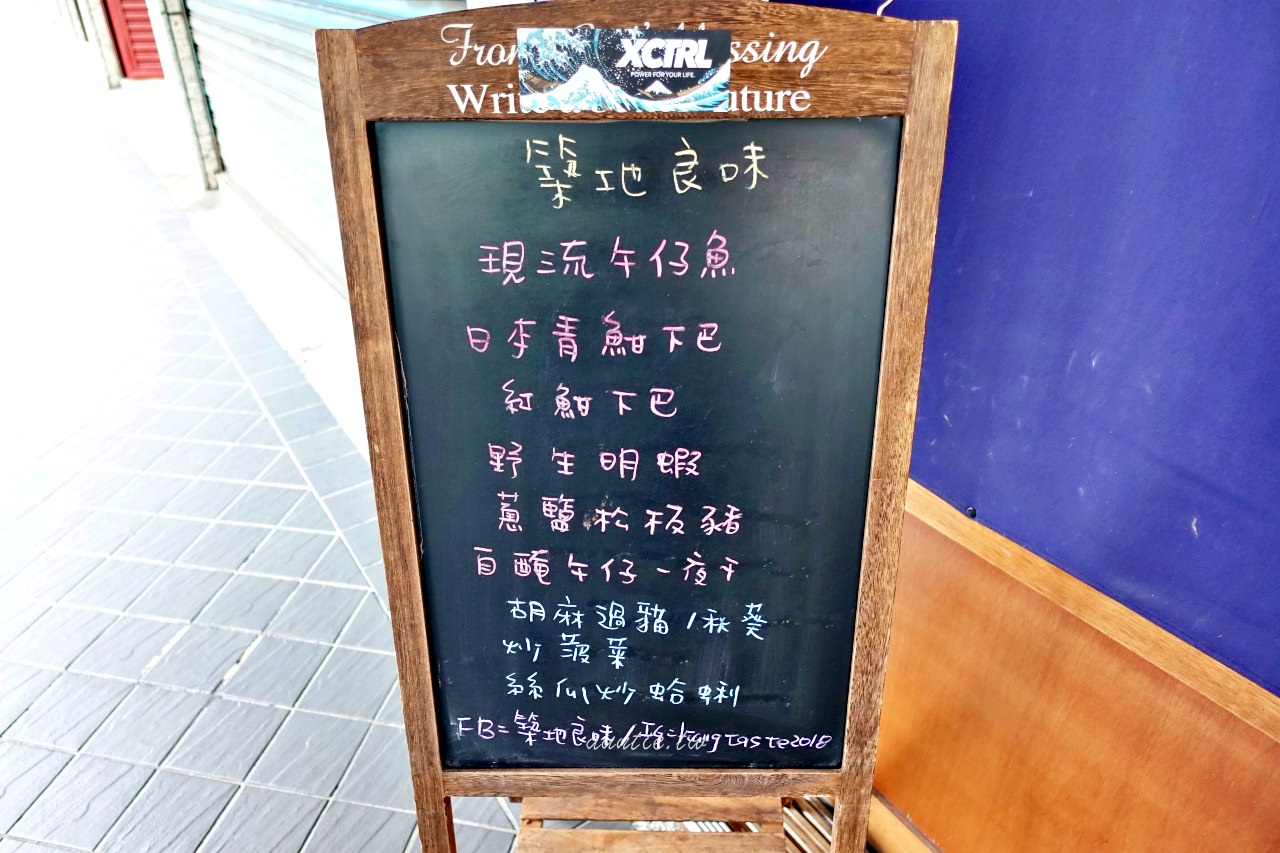 XCTRL
POWER FOR YOUR LIFE.
築地良味
現流午仔魚
日本青魽下巴
紅魽下巴
野生明蝦
蔥鹽松板豬
自醃午仔一夜干
胡麻過貓/秋葵
炒菠菜
絲瓜炒蛤蜊
FB=築地良味/
taste2018